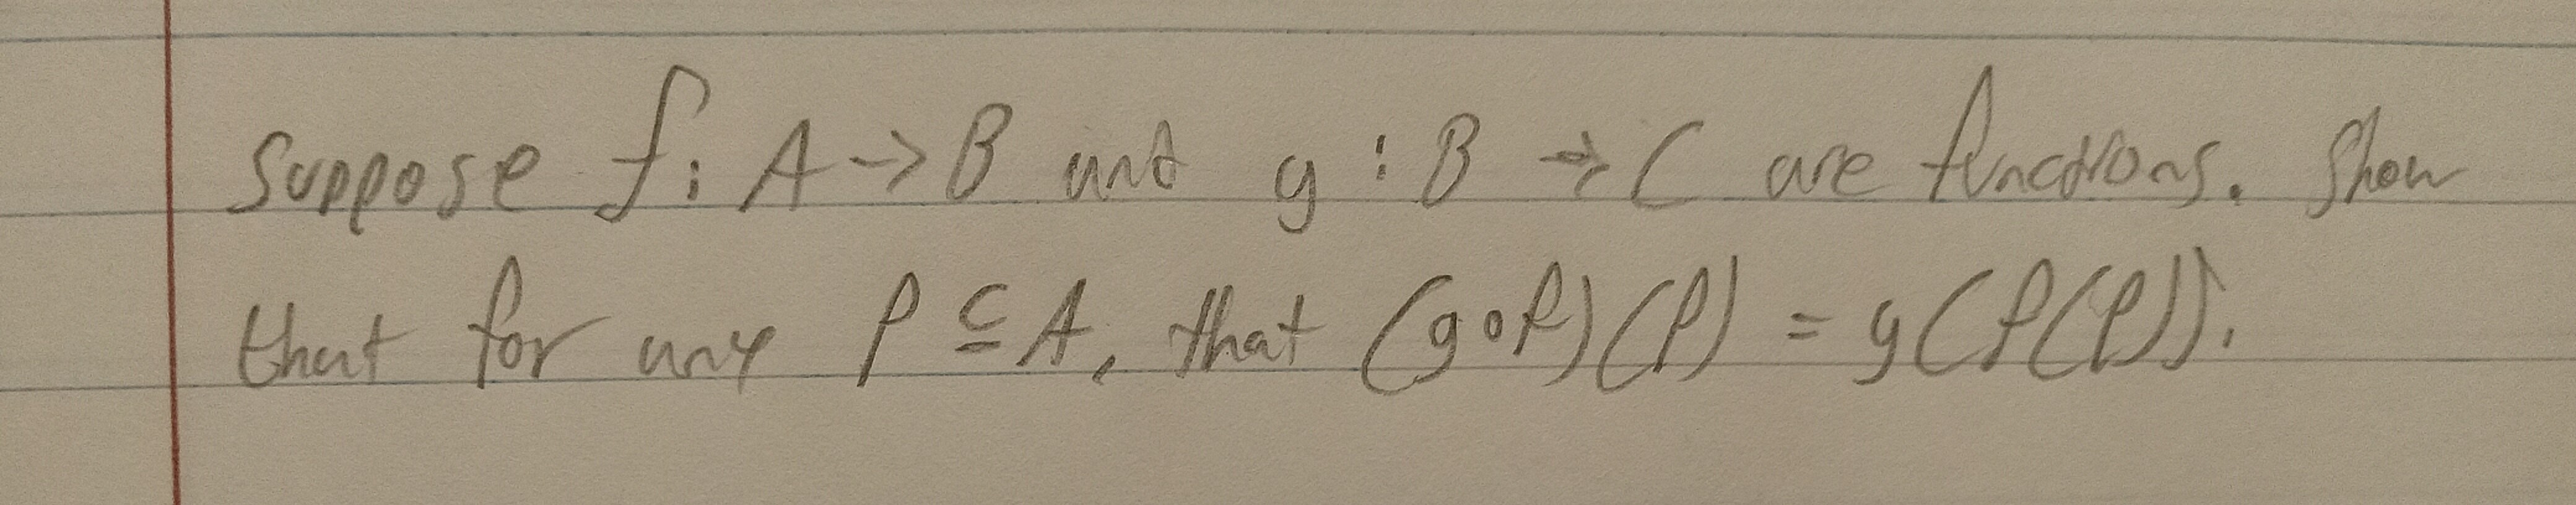 Suppose f: A -> B and g: B -> C are functions. Show
that for any P ⊆ A, that (g∘f)(P) = g(f(P)).